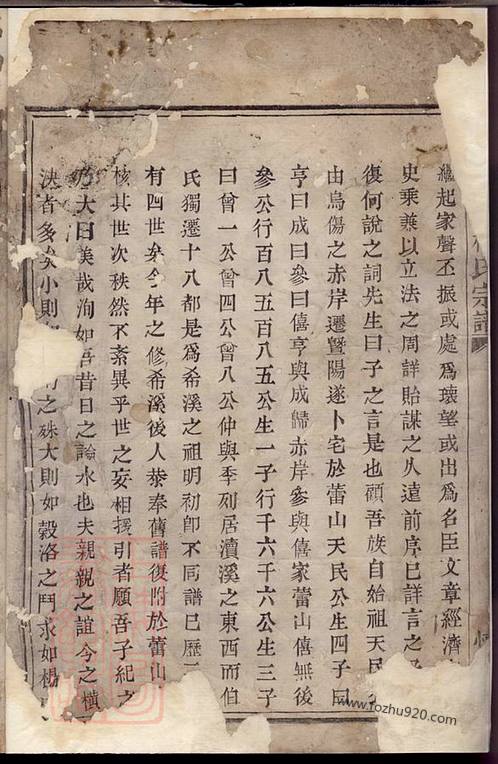 氏宗譜
繼起家聲丕振或處爲瓌望或出爲名臣文章經濟
史乘兼以立法之周詳貽謀之久遠前序已詳言之
復何說之詞先生曰子之言是也顧吾族自始祖天民
由烏傷之赤岸遷暨陽遂卜宅於蕾山天民公生四子曰
亨曰成曰參曰僖亨與成歸赤岸參與僖家蕾山僖無後
參公行百八五百八五公生一子行千六千六公生三子
曰曾一公曾四公曾八公仲與季列居瀆溪之東西而伯
氏獨遷十八都是爲希溪之祖明初卽不同譜已歷
有四世矣今年之修希溪後人恭奉舊譜復附於蕾山
核其世次秩然不紊異乎世之妄相援引者願吾子紀之
乃大曰美哉洵如吾昔日之論水也夫親親之誼今之橫
決者多矣小則
之殊大則如穀洛之鬥求如楊
www.fozhu920.com